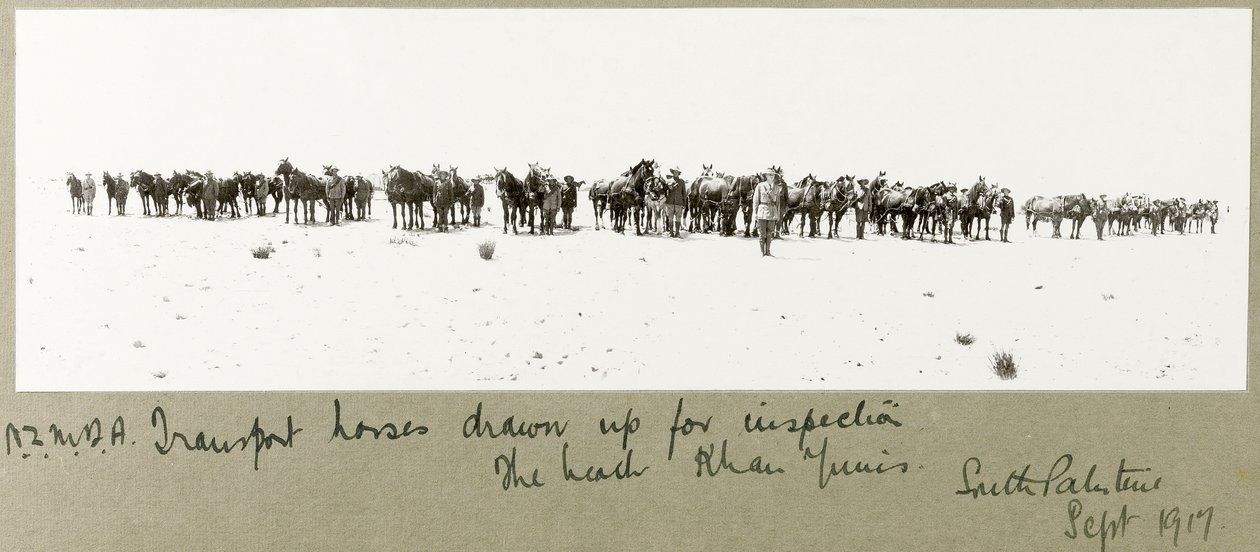 N.Z.M.D.A. Transport horses drawn up for inspection
The beach Khan Yunis.
South Palestine
Sept 1917.